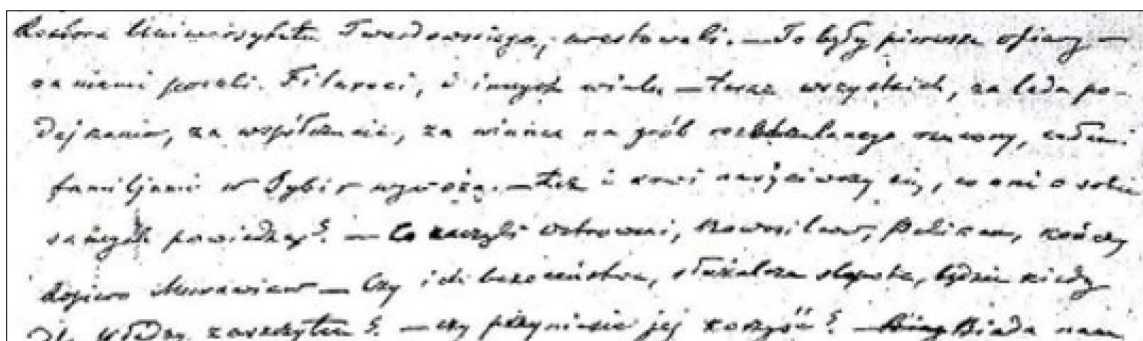 Rektora Uniwersytetu Twardowskiego, aresztowali. — To były pierwsze ofiary —
za niemi poszli. Filareci, i innych wielu — teraz wszystkich, za lada po-
dejrzenie, za współczucie, za wieniec na grób rozstrzelanego rzucony, całemi
familjami w Sybir wywożą. — łez i krwi nasyciwszy się, co oni o sobie
samych powiedzą? — Co zaczęli Nowosilcow, Pelikan, kończy
dopiero Murawiew — Czy ich bezeceństwa, służalcza ślepota, będzie kiedy
dla władzy zaszczytem? — czy przyniesie jej korzyść? — Biada nam